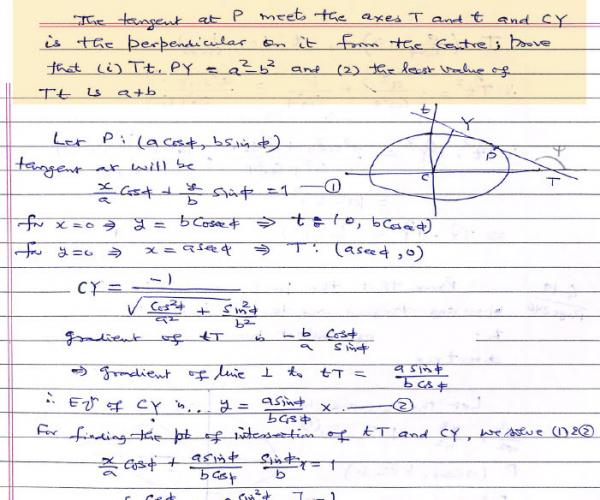 The tangent at P meets the axes T and t and CY
is the perpendicular on it from the Centre; prove
that (i) Tt. PY = a²-b² and (2) the least value of
Tt is a+b.
t
Y
P
ψ
C
T
Let P: (a cosϕ, b sinϕ)
tangent at will be
x/a Cosϕ + y/b Sinϕ = 1 —①
for x=0 ⇒ y = b Cosecϕ ⇒ t = (0, b Cosecϕ)
for y=0 ⇒ x = a secϕ ⇒ T: (a secϕ, 0)
CY = -1 / √(Cos²ϕ/a² + Sin²ϕ/b²)
gradient of tT is - b/a Cosϕ/Sinϕ
⇒ gradient of line ⊥ to tT = a sinϕ / b cosϕ
∴ Eqn of CY is.. y = a sinϕ / b cosϕ x. —②
For finding the pt of intersection of tT and CY, we solve (1) & ②
x/a Cosϕ + a sinϕ/b cosϕ Sinϕ/b x = 1